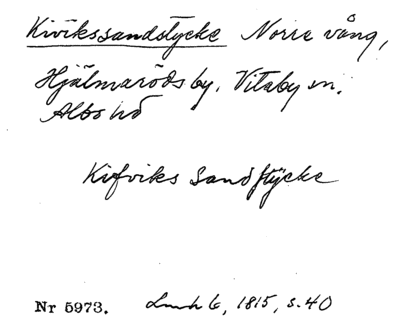 Kivikssandstycke Norre vång,
Hjälmaröds by, Vitaby sn.
Albo hd
Kifviks Sandstÿcke
Nr 5973. Lmh G, 1815, s. 40